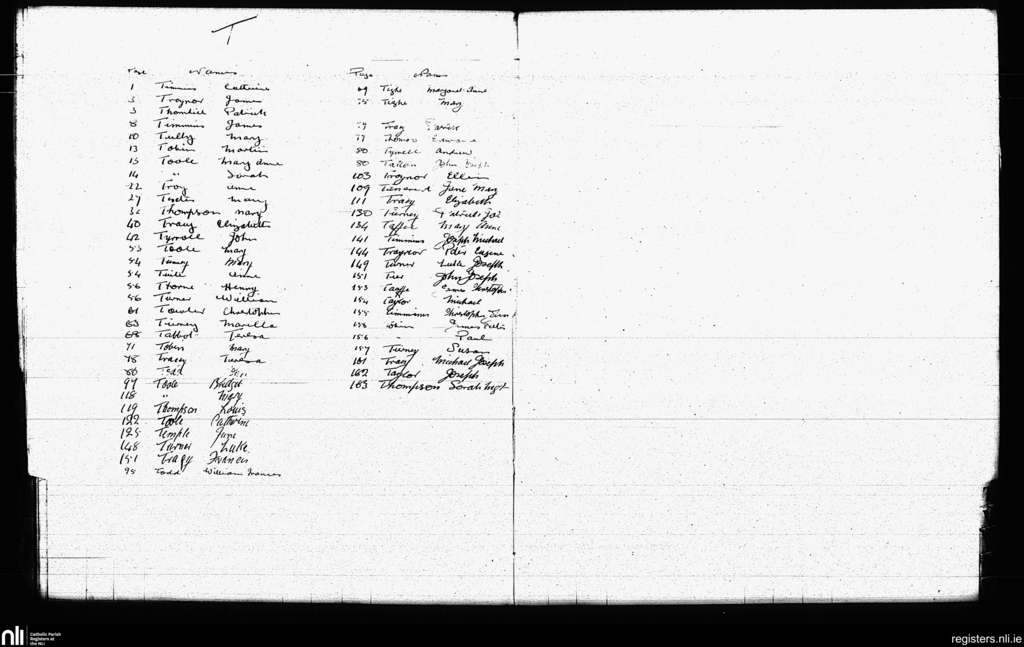 T
Page Names
1 Timmins Catherine
3 Traynor James
3 Thornhill Patrick
8 Timmins James
10 Tully Mary
13 Tobin Martin
15 Toole Mary Anne
14 " Sarah
22 Troy Anne
27 Mary
Thompson Mary
40 Tracy Elizabeth
42 Tyrrell John
53 Toole May
54 Tierney Mary
54 Anne
56 Thorne Henry
56 Turner William
61 Christopher
63 Tierney
68 Talbot Teresa
71 Tobin May
78 Tracey Teresa
80 Todd
97 Toole Bridget
118 " Mary
119 Thompson Louis
122 Toole Catherine
125 Temple Jane
148 Turner Luke
151 Tracy Francis
95 Todd William Francis
Page Names
69 Tighe Margaret Anne
75 Tighe May
77 Troy Patrick
77 Thomas Edward
80 Tyrrell Andrew
80 John
103 Traynor Ellen
109 Jane Mary
111 Tracy Elizabeth
130 Tierney Patrick
134 Taffee May Anne
141 Timmins Joseph Michael
144 Traynor Peter Eugene
149 Turner Luke Joseph
151 John Joseph
153 Taaffe James Christopher
154 Taylor Michael
155 Timmins Christopher
158 James
156 " Paul
157 Tierney Susan
161 Troy Michael Joseph
162 Taylor Joseph
163 Thompson Sarah Mgt
nli
Catholic Parish
Registers at
the NLI
registers.nli.ie